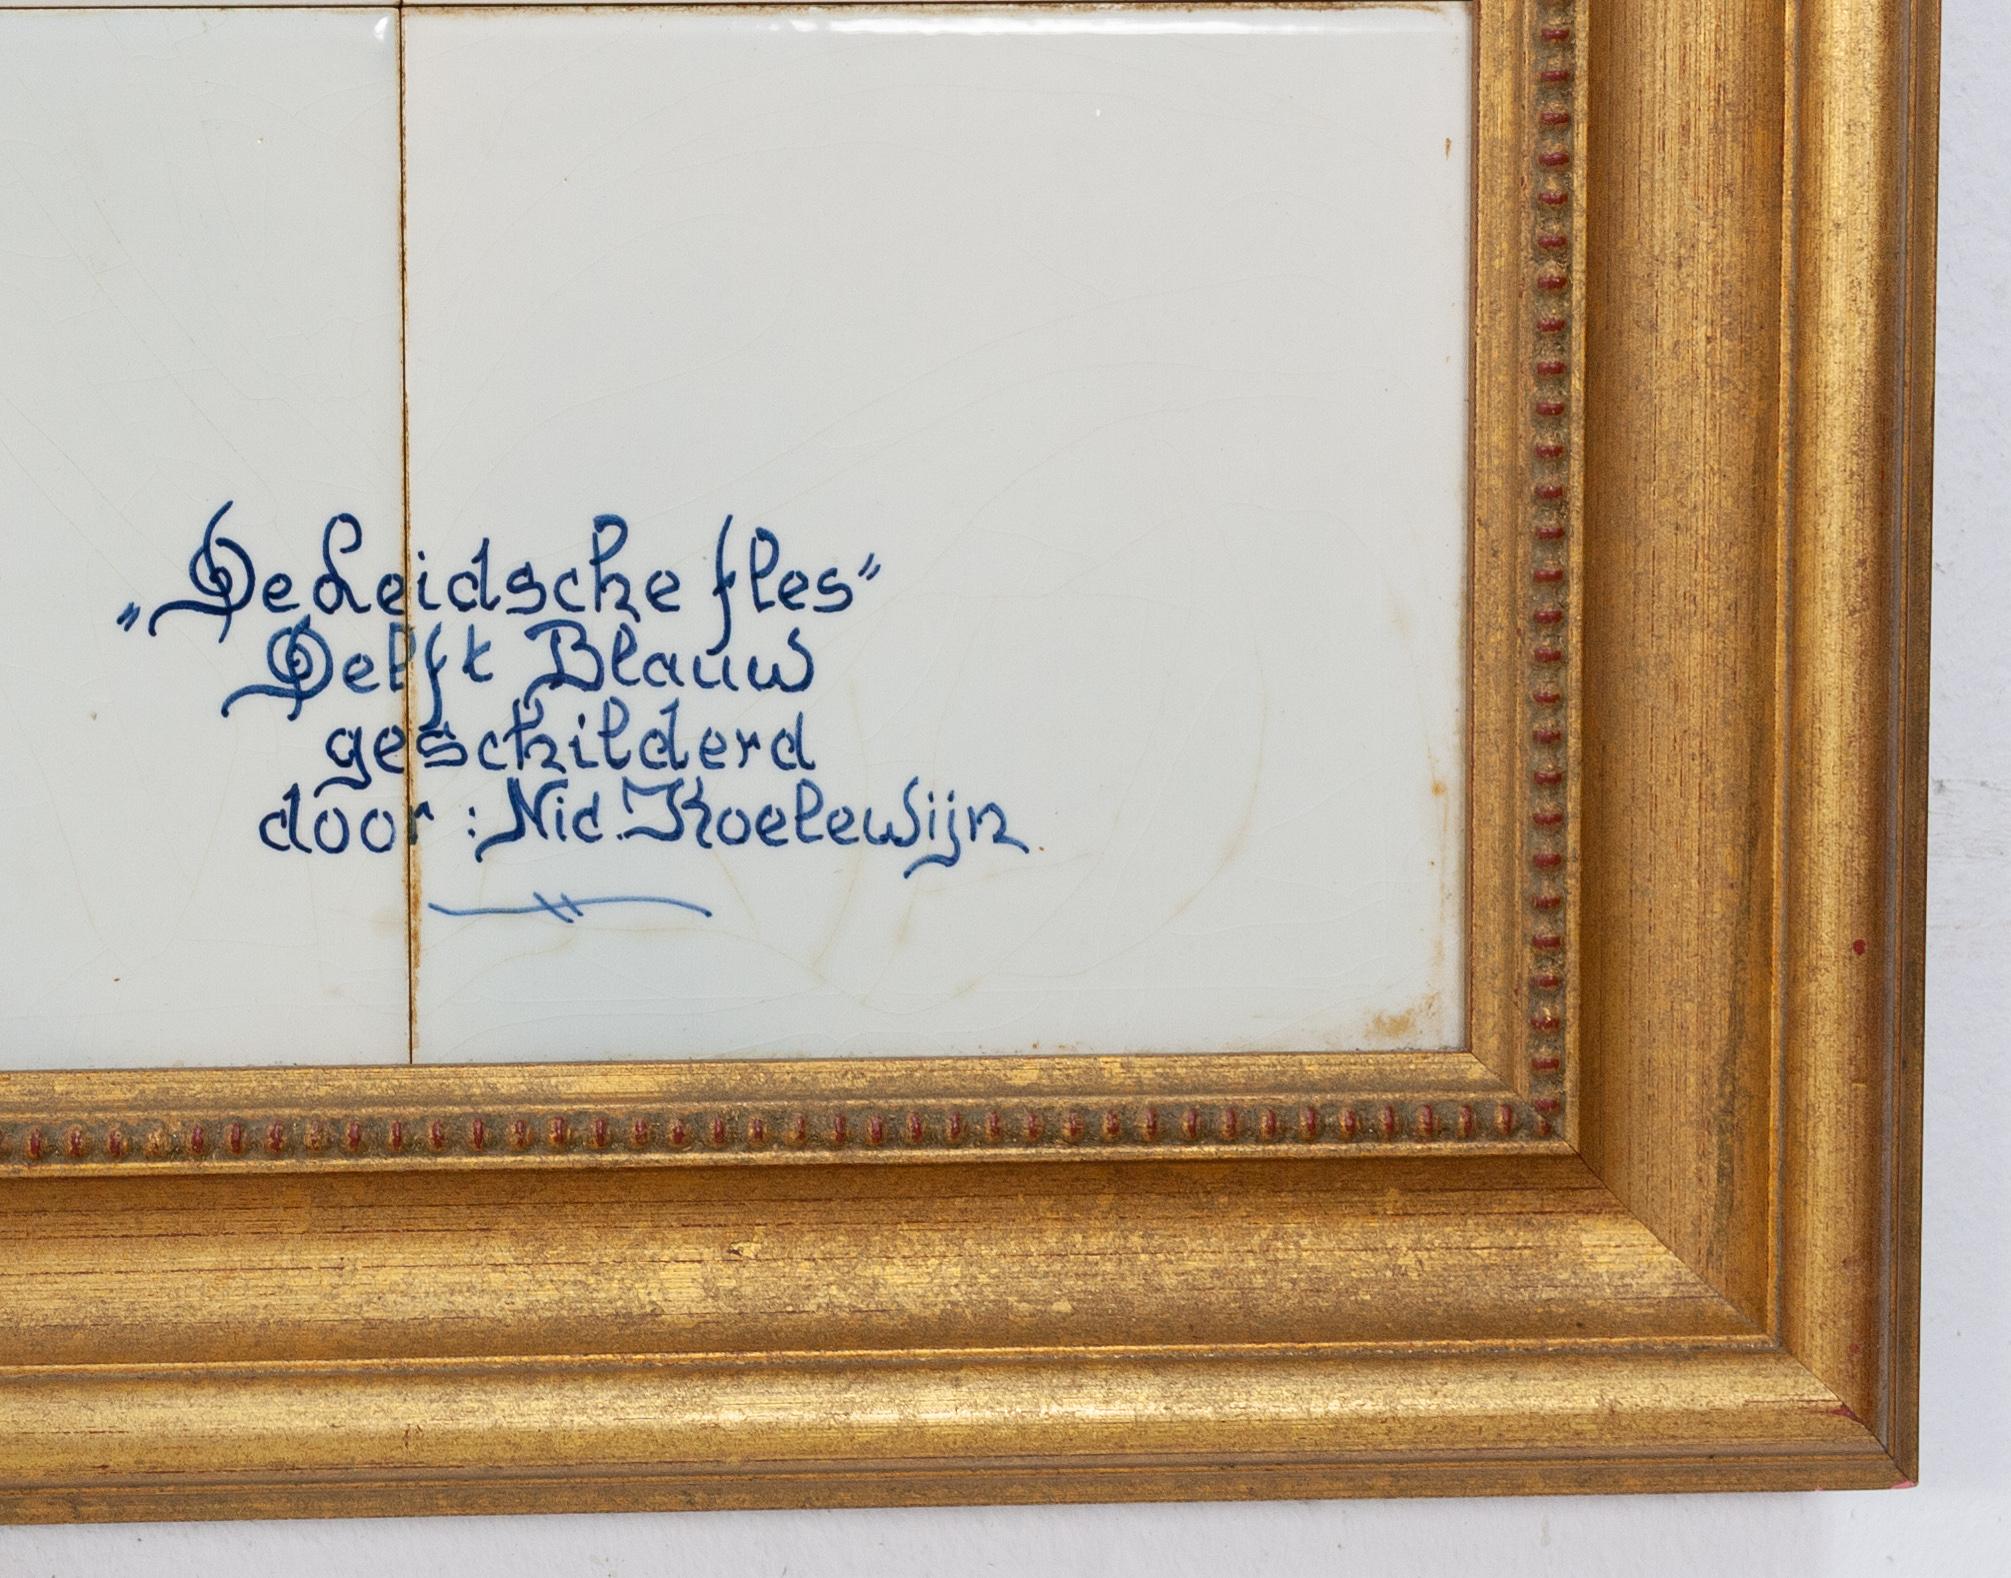 „De Leidsche fles"
Delft Blauw
geschilderd
door: Nic. Koelewijn